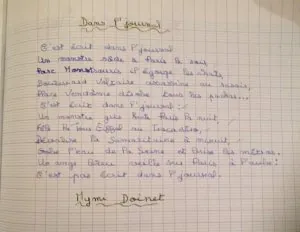 Dans l'journal
C'est écrit dans l'journal
Un monstre rôde à Paris le soir,
Parc Montsouris il égorge les chats,
Boulevard Voltaire assassine au rasoir,
Place Vendôme étrangle tous les
C'est écrit dans l'journal:
Un monstre gris hante Paris la nuit,
Pille la Tour Eiffel au Trocadéro,
la Samaritaine à minuit,
l'eau de la Seine et brise les métros.
Un ange bleu veille sur Paris à l'aube:
C'est pas écrit dans l'journal.
Mymi Doinet